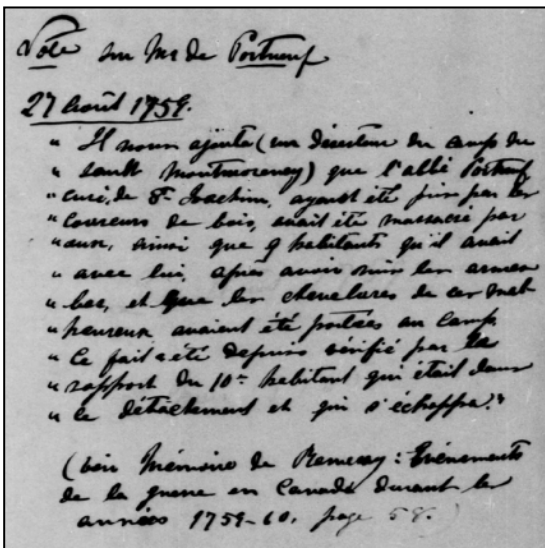 Note sur Mr de Portneuf
27 Août 1759.
" Il nous ajouta (un déserteur du camp du
" Sault Montmorency) que l'abbé Portneuf
" curé de St Joachim, ayant été pris par les
" Coureurs de bois, avait été massacré par
" eux, ainsi que 9 habitants qu'il avait
" avec lui, après avoir mis les armes
" bas, et que les chevelures de ces mal-
" heureux avaient été portées au Camp.
" Ce fait a été depuis vérifié par le
" rapport du 10e habitant qui était dans
" le détachement et qui s'échappa."
(Voir Mémoire de Ramezay : Evénements
de la guerre en Canada durant les
années 1759-60, page 58.)